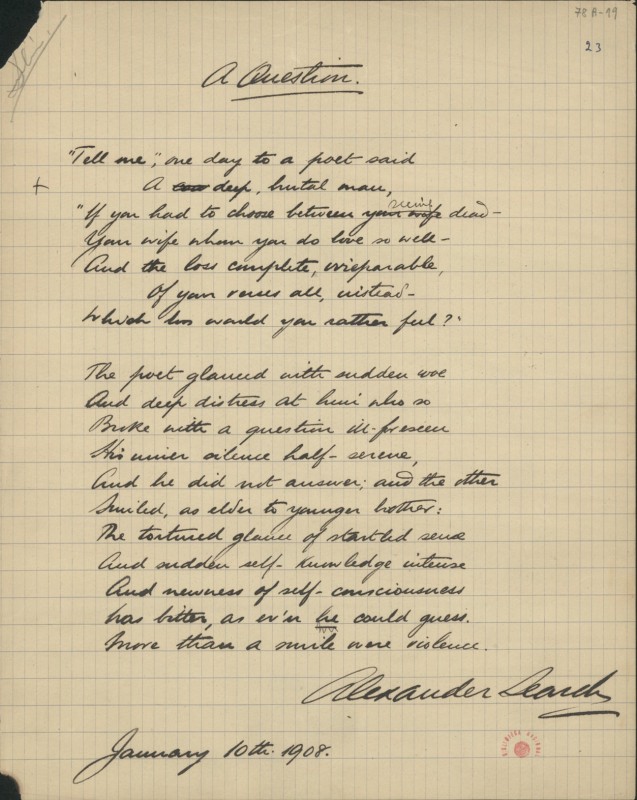 78A-19
23
A Question.
"Tell me", one day to a poet said
+ A deep, brutal man,
"If you had to choose between seeing dead –
Your wife whom you do love so well –
And the loss complete, irreparable,
Of your verses all, instead –
Which loss would you rather feel?"
The poet glanced with sudden woe
And deep distress at him who so
Broke with a question ill-foreseen
His inner silence half-serene,
And he did not answer; and the other
Smiled, as elder to younger brother:
The tortured glance of startled sense
And sudden self-knowledge intense
And newness of self-consciousness
Was bitter, as ev'n he could guess.
More than a smile were violence.
Alexander Search
January 10th. 1908.